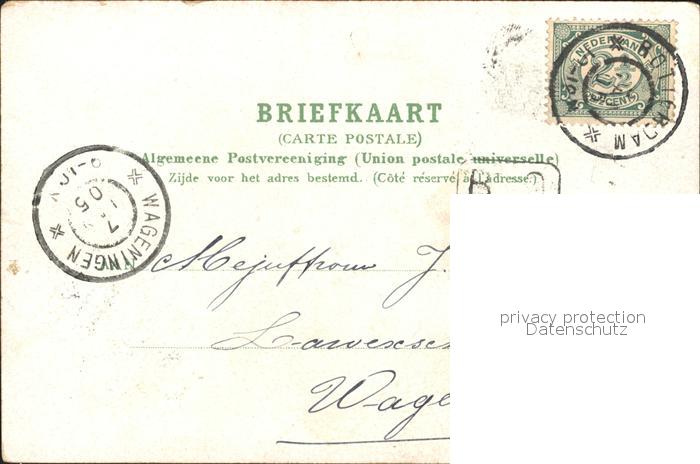 BRIEFKAART
(CARTE POSTALE)
Algemeene Postvereeniging (Union postale universelle)
Zijde voor het adres bestemd. (Côté réservé à l'adresse.)
NEDERLAND
2½
CENT
ROTTERDAM
WAGENINGEN
Mejuffrouw J.
Wage
privacy protection
Datenschutz